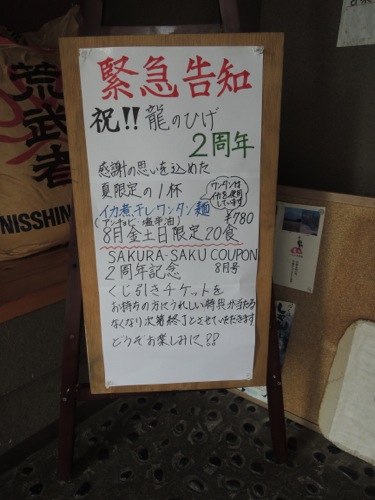 緊急告知
祝!! 龍のひげ
2周年
感謝の思いを込めた
夏限定の1杯
ワンタンは
イカを使用
しています
イカ煮干しワンタン麺
¥780
8月金土日限定20食
SAKURA-SAKU COUPON
2周年記念 8月号
くじ引きチケットを
お持ちの方にうれしい特典が当たる
なくなり次第終了とさせていただきます
どうぞお楽しみに!!
荒武者
NISSHIN